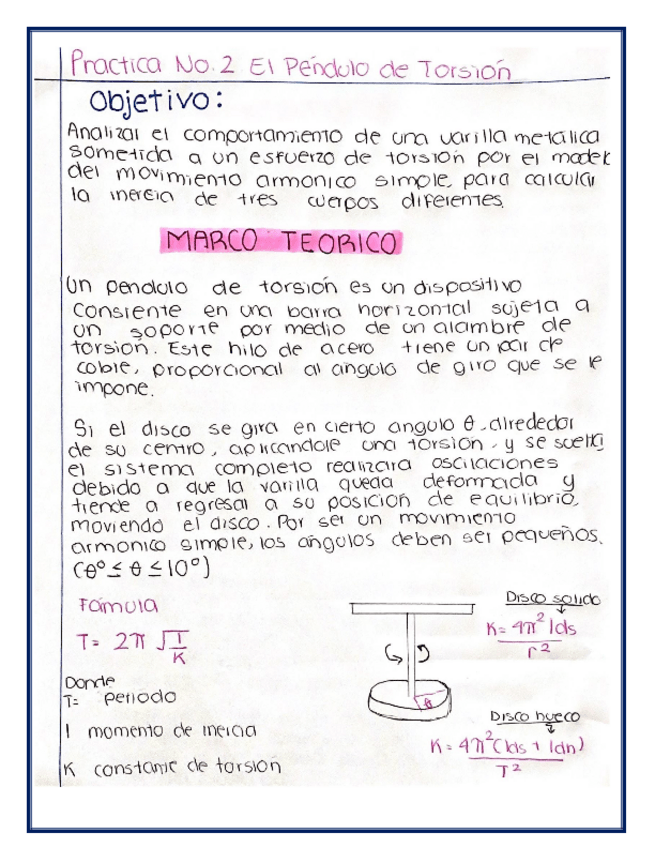 Practica No. 2 El Péndulo de Torsión
Objetivo:
Analizar el comportamiento de una varilla metalica
sometida a un esfuerzo de torsión por el model
del movimiento armonico simple para calcular
la inercia de tres cuerpos diferentes.
MARCO TEORICO
Un pendulo de torsión es un dispositivo
Consiente en una barra horizontal sujeta a
un soporte por medio de un alambre de
torsión. Este hilo de acero tiene un par de
coble, proporcional al angulo de giro que se le
impone.
Si el disco se gira en cierto angulo θ alrededor
de su centro, aplicandole una torsion y se suelta
el sistema completo realizara oscilaciones
debido a que la varilla queda deformada y
tiende a regresar a su posición de equilibrio,
moviendo el disco. Por ser un movimiento
armonico simple, los angulos deben ser pequeños.
(θ° ≤ θ ≤ 10°)
Fórmula
T = 2π √I/K
Donde
T= periodo
I momento de inercia
K constante de torsión
Disco solido
K = 4π² Ids / r²
θ
Disco hueco
K = 4π² (Ids + Idh) / T²